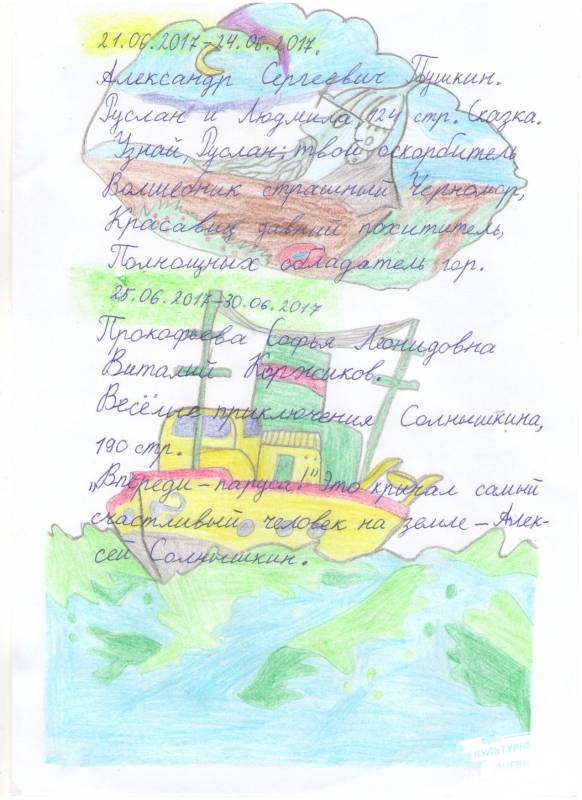 21.06.2017-24.06.2017.
Александр Сергеевич Пушкин.
Руслан и Людмила, 124 стр. Сказка.
Узнай, Руслан: твой оскорбитель
Волшебник страшный Черномор,
Красавиц давний похититель,
Полнощных обладатель гор.
25.06.2017-30.06.2017
Прокофьева Софья Леонидовна
Виталий Коржиков
Весёлые приключения Солнышкина,
190 стр.
„Впереди-паруса!" Это кричал самый
счастливый человек на земле-Алек-
сей Солнышкин.
КУЛЬТУРНЫ
ДНЕВН